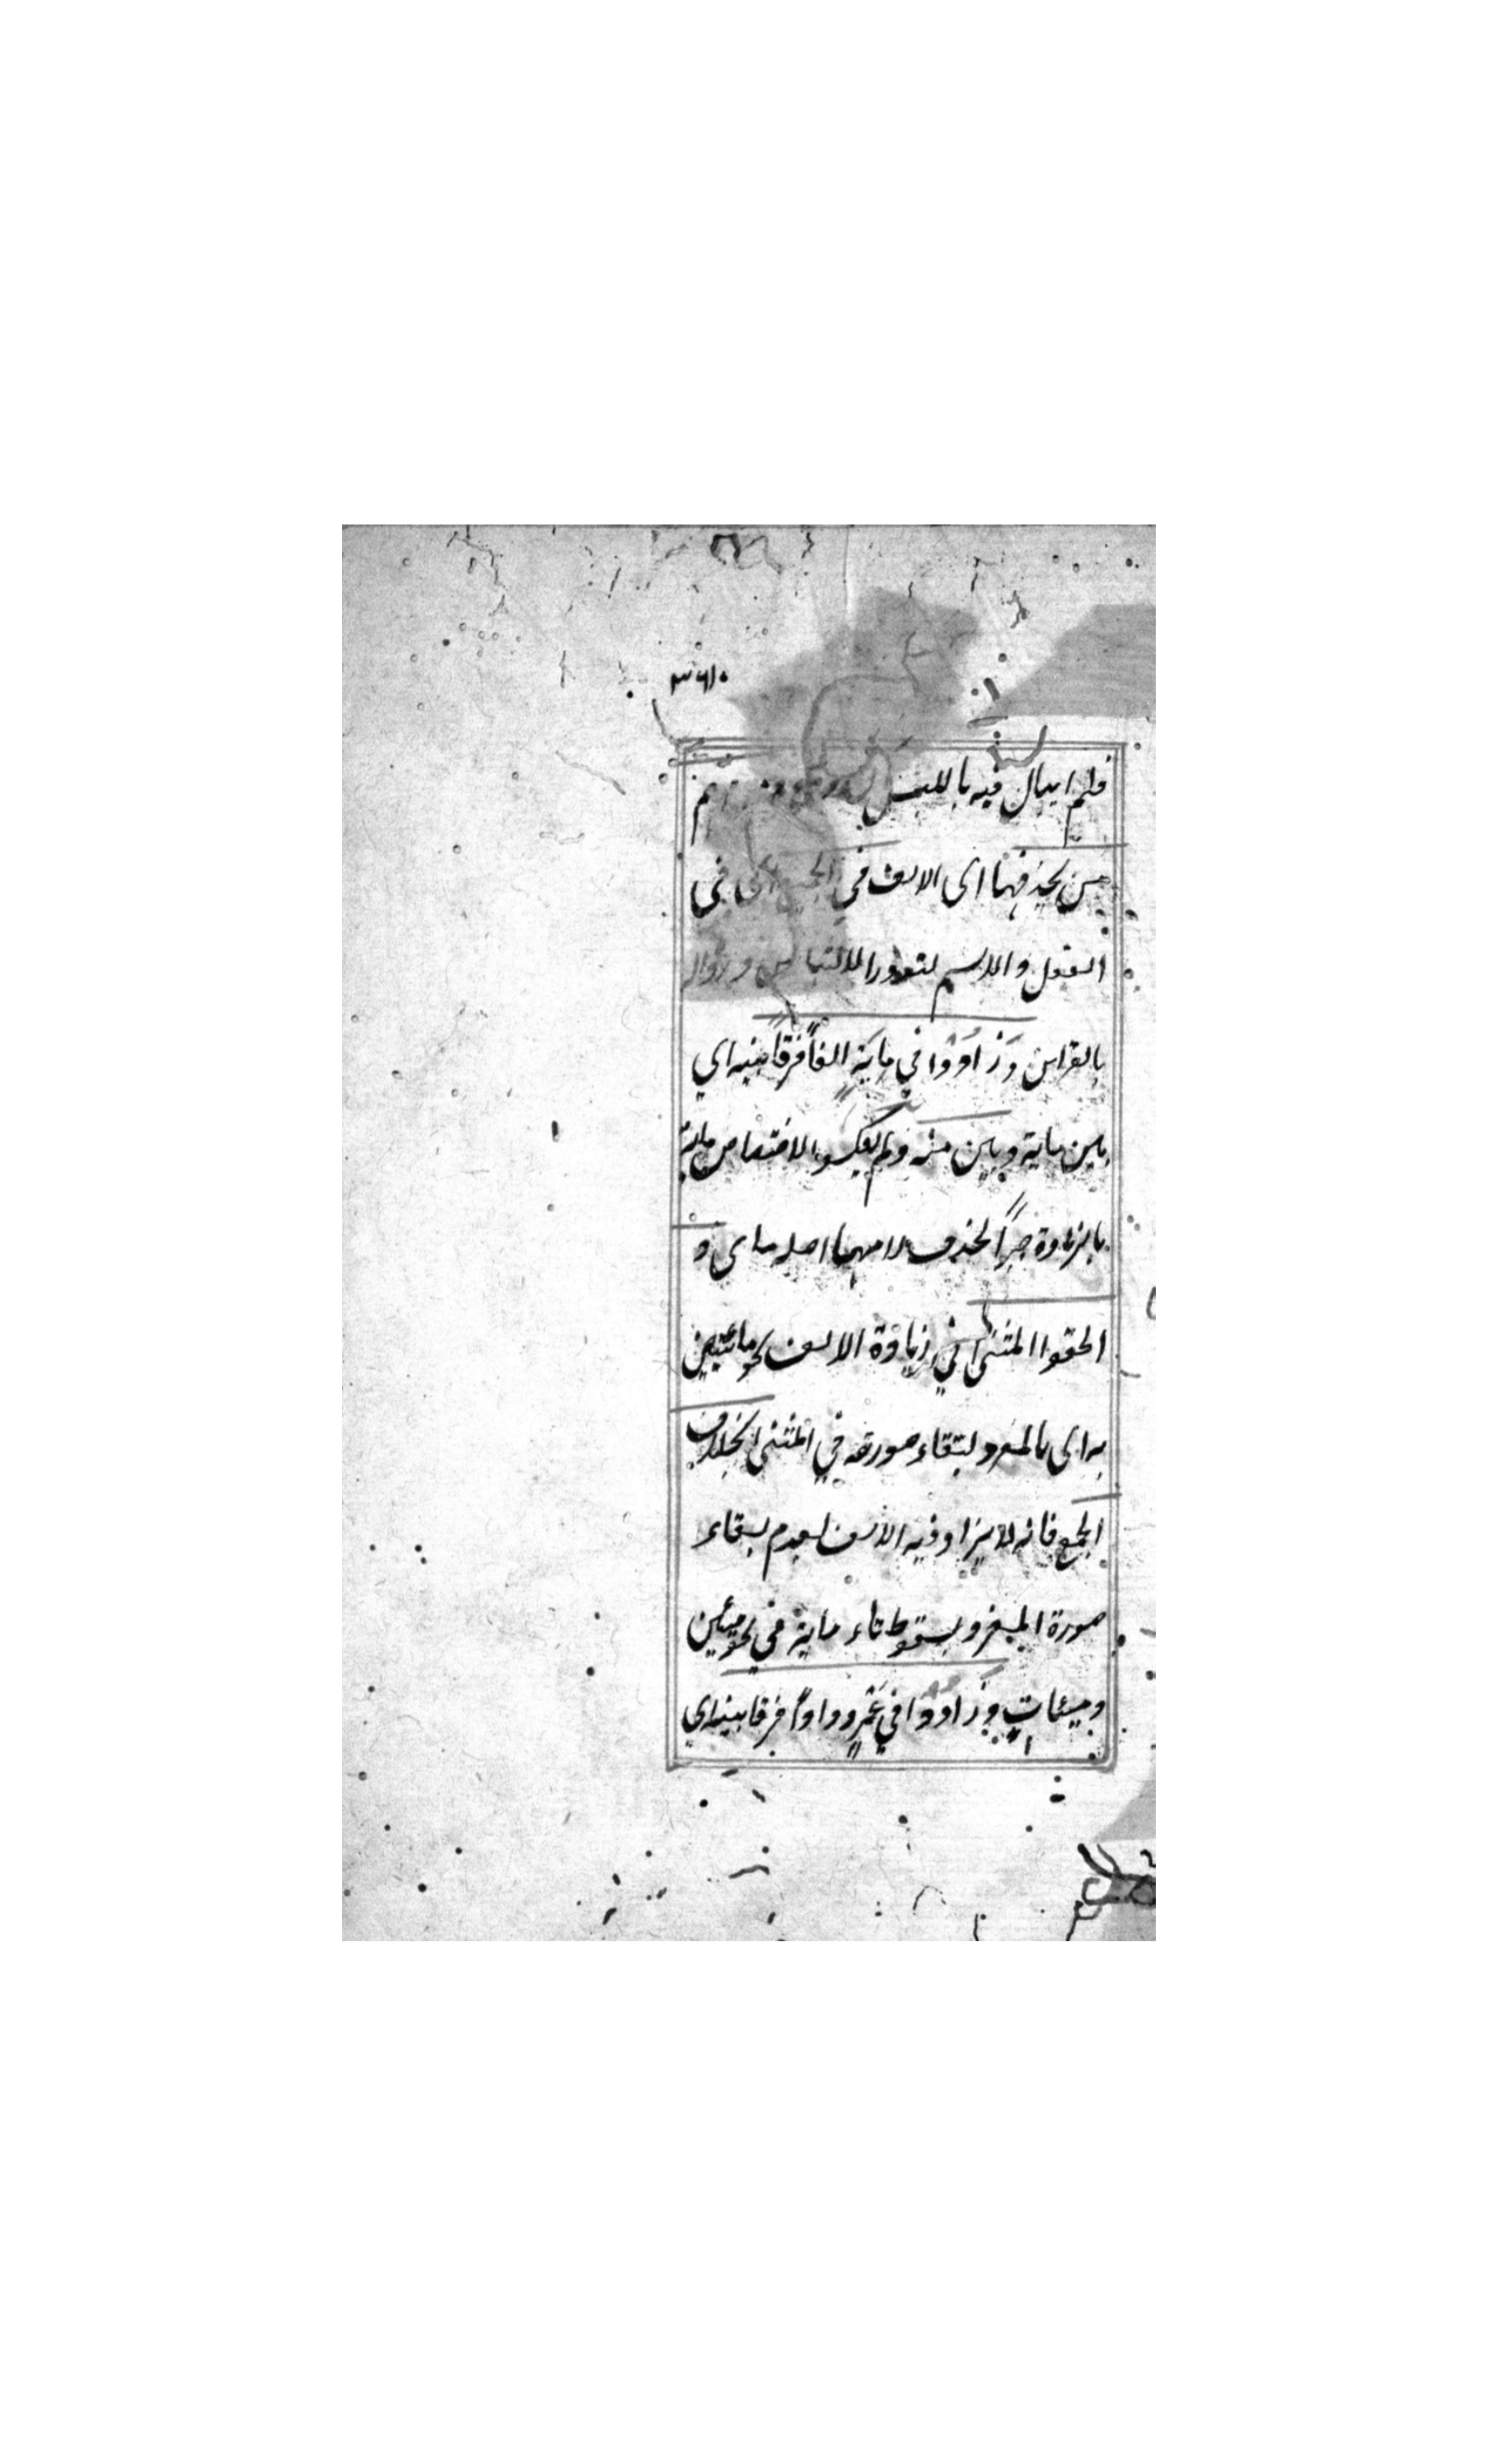 ٣٦١٠
فلم ايبال فيه باللبس ومنهم
من يحذفها اى الالف فى الجميع اى فى
الفعل والاسم لندور الالتباس وزواله
بالقراين وَزَادُوْا في مايَةٍ الفاً فرقاً بينه اي
بين ماية وبين منه ولم يعكسوا لاختصاص ماية
بالزيادة جبراً لحذف لامها اصله ماى و
الحقوا المثنى في زيادة الالف نحو مائتين
به اى بالمفرد لبقاء صورته في المثنى بخلاف
الجمع فانه لا يزاد فيه الالف لعدم بقاء
صورة المفرد بسقوط تاء ماية في نحو مئين
وميئاتٍ وَزَادُوْا في عَمْرٍو واواً فرقا بينه اي